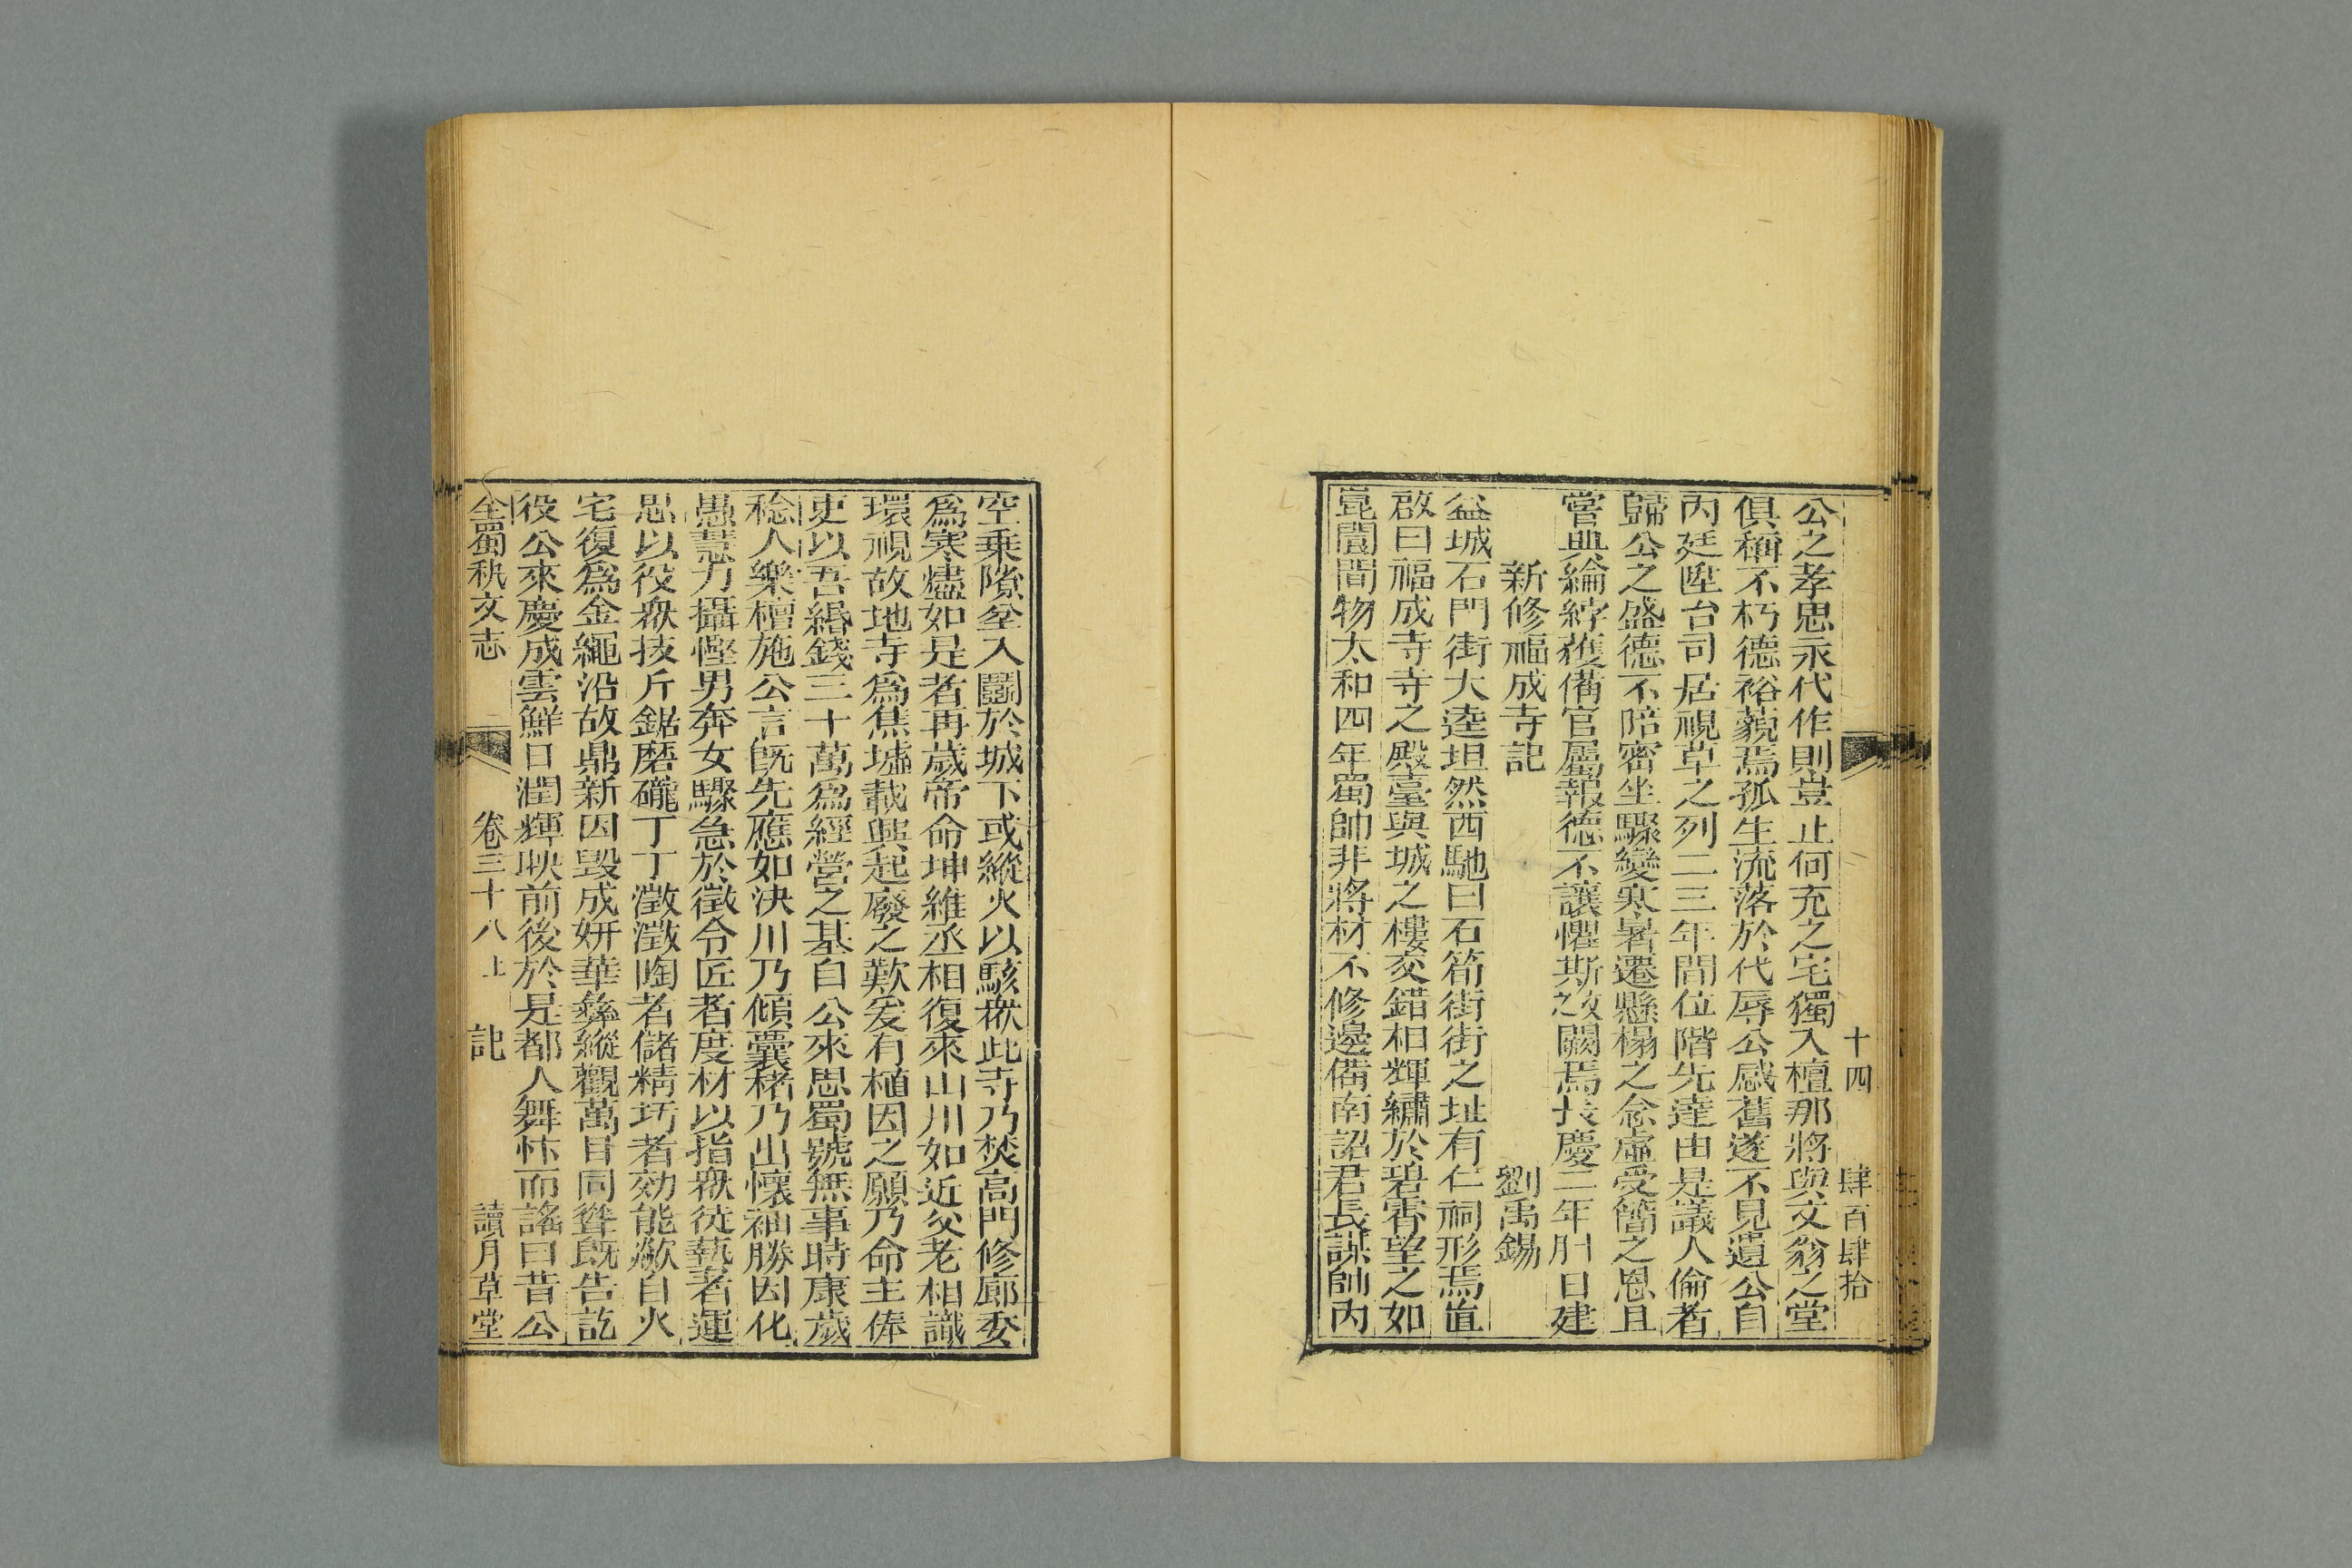 十四　肆百肆拾
公之孝思永代作則豈止何充之宅獨入檀那將與文翁之堂
俱稱不朽德裕藐焉孤生流落於代辱公感舊遂不見遺公自
丙廷陞台司居視草之列二三年間位階先達由是議人倫者
歸公之盛德不陪密坐驟變寒暑遷懸榻之念虛受簡之恩且
嘗典綸綍獲備官屬報德不讓懼斯文闕焉長慶二年月日建
新修福成寺記　劉禹錫
益城石門街大逵坦然西馳曰石筍街街之址有仁祠形焉直
啟曰福成寺寺之殿臺與城之樓交錯相輝繡於碧霄望之如
崑閬間物太和四年蜀帥非將材不修邊備南詔君長諜帥內
空乘隙坌入鬬於城下或縱火以駭衆此寺乃焚高門修廊委
爲寒燼如是者再歲帝命坤維丞相復來山川如近父老相識
環視故地寺爲焦墟載興起廢之歎爰有植因之願乃命主俸
吏以吾緡錢三十萬爲經營之基自公來思蜀號無事時康歲
稔人樂檀施公言旣先應如決川乃傾囊楮乃出懷袖勝因化
愚慧力攝慳男奔女驟急於徵令匠者度材以指衆從藝者運
思以役衆技斤鋸磨礲丁丁澂澂陶者儲精圬者効能歘自火
宅復爲金繩沿故鼎新因毀成妍華彝縱觀萬目同聳旣告訖
役公來慶成雲鮮日潤輝映前後於是都人舞忭而謠曰昔公
全蜀秇文志　卷三十八上　記　讀月草堂